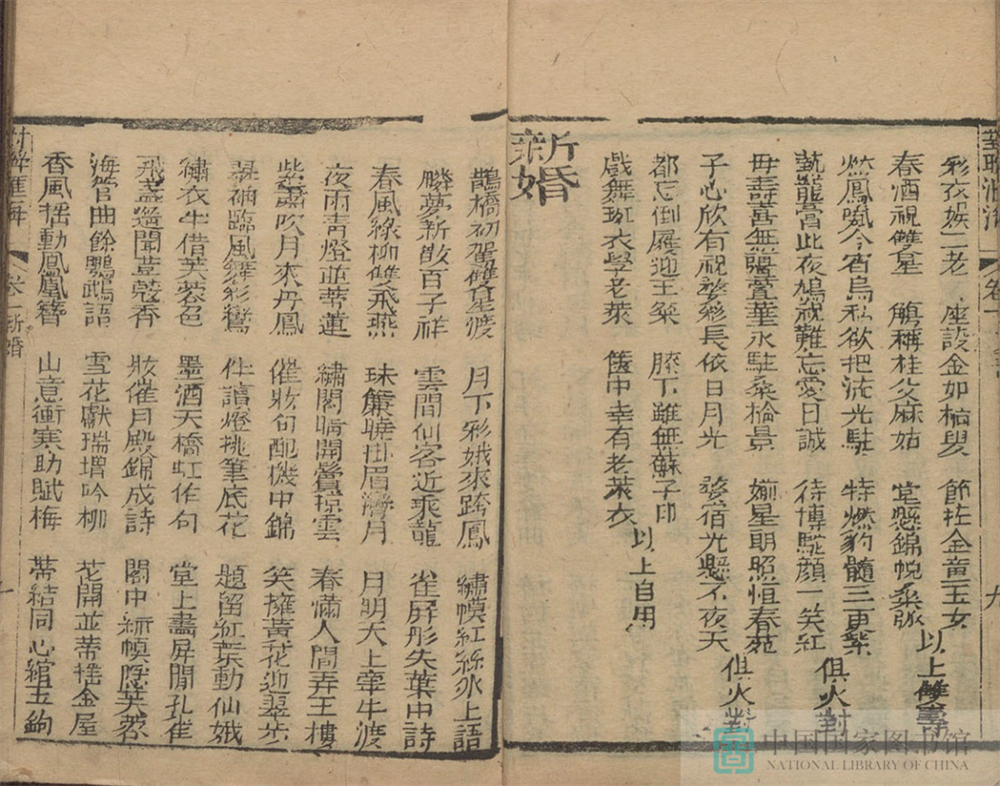 彩衣娛二老 座設金如栢叟 節拄金童玉女
春酒祝雙星 觴稱桂父麻姑 堂懸錦帨桑弧 以上雙壽
燃鳳 今宵烏私欲把流光駐 特燃豹髓三更紫
龍膏此夜鳩祝難忘愛日誠 待博駝顏一笑紅 俱火對
母壽喜無疆萱華永駐桑榆景 婺星朗照恒春苑
子心欣有祝婺彩長依日月光 婺宿光懸不夜天 俱火對
都忘倒屣迎王粲 膝下雖無蘇子印
戲舞斑衣學老萊 篋中幸有老萊衣 以上自用
新婚
鵲橋初駕雙星渡 月下彩娥來跨鳳 繡幙紅絲氷上語
麟夢新徵百子祥 雲間仙客近乘龍 雀屏彤矢葉中詩
春風綠柳雙飛燕 珠簾曉掛眉灣月 月明天上牽牛渡
夜雨青燈並蒂蓮 繡閣晴開鬢掠雲 春滿人間弄玉樓
紫簫吹月來丹鳳 催妝句配機中錦 笑擁黃花迎翠步
翠袖臨風舞彩鸞 伴讀燈挑筆底花 題留紅葉動仙娥
繡衣牛借芙蓉色 墨洒天橋虹作句 堂上畵屏開孔雀
飛盞遙聞荳蔻香 妝催月殿錦成詩 閣中綵幙隱芙蓉
海管曲餘鸚鵡語 雪花獻瑞增吟柳 花開並蒂搖金屋
香風搖動鳳凰簪 山意衝寒助賦梅 帶結同心綰玉鉤
中国国家图书馆
NATIONAL LIBRARY OF CHINA